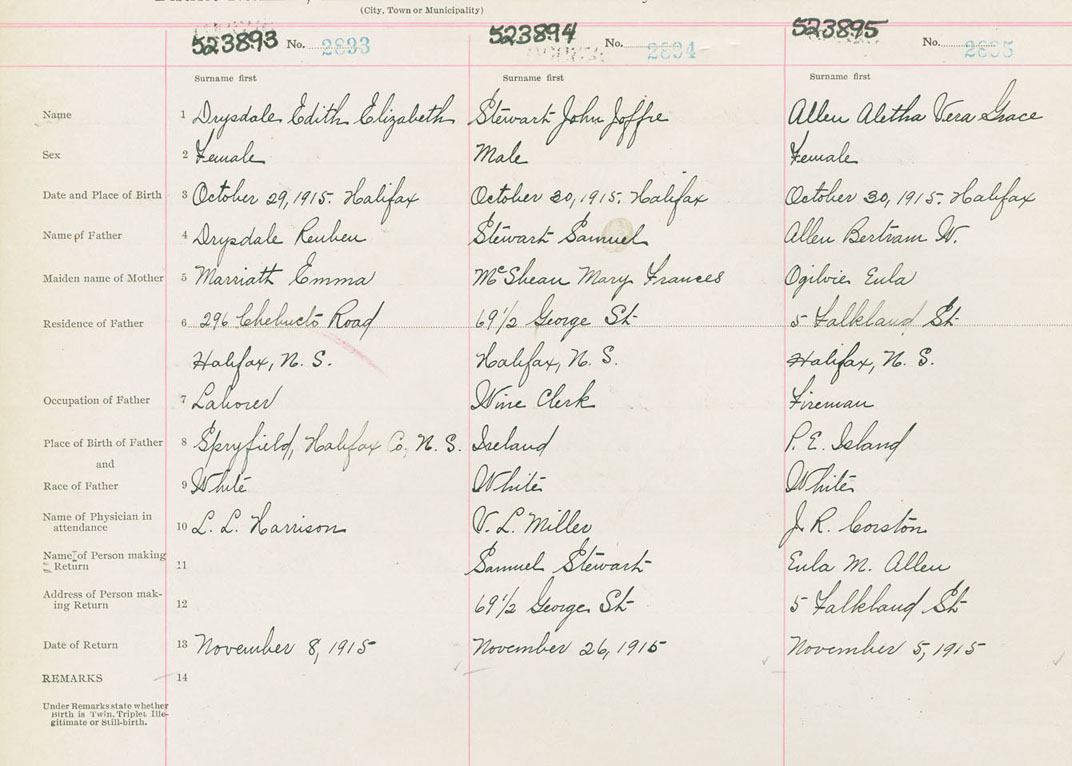 (City, Town or Municipality)
523893 No. 2893 523894 No. 2894 523895 No. 2895
Surname first Surname first Surname first
Name 1 Drysdale Edith Elizabeth Stewart John Joffre Allen Aletha Vera Grace
Sex 2 Female Male Female
Date and Place of Birth 3 October 29, 1915. Halifax October 30, 1915. Halifax October 30, 1915. Halifax
Name of Father 4 Drysdale Reuben Stewart Samuel Allen Bertram W.
Maiden name of Mother 5 Marriath Emma McShean Mary Frances Ogilvie Eula
Residence of Father 6 296 Chebucto Road 69 1/2 George St 5 Falkland St
Halifax, N. S. Halifax, N. S. Halifax, N. S.
Occupation of Father 7 Laborer Wine Clerk Fireman
Place of Birth of Father 8 Spryfield, Halifax Co, N. S. Ireland P. E. Island
and
Race of Father 9 White White White
Name of Physician in attendance 10 L. L. Harrison V. L. Miller J. R. Corston
Name of Person making Return 11 Samuel Stewart Eula M. Allen
Address of Person mak-
ing Return 12 69 1/2 George St 5 Falkland St
Date of Return 13 November 8, 1915 November 26, 1915 November 5, 1915
REMARKS 14
Under Remarks state whether
Birth is Twin, Triplet Ille-
gitimate or Still-birth.